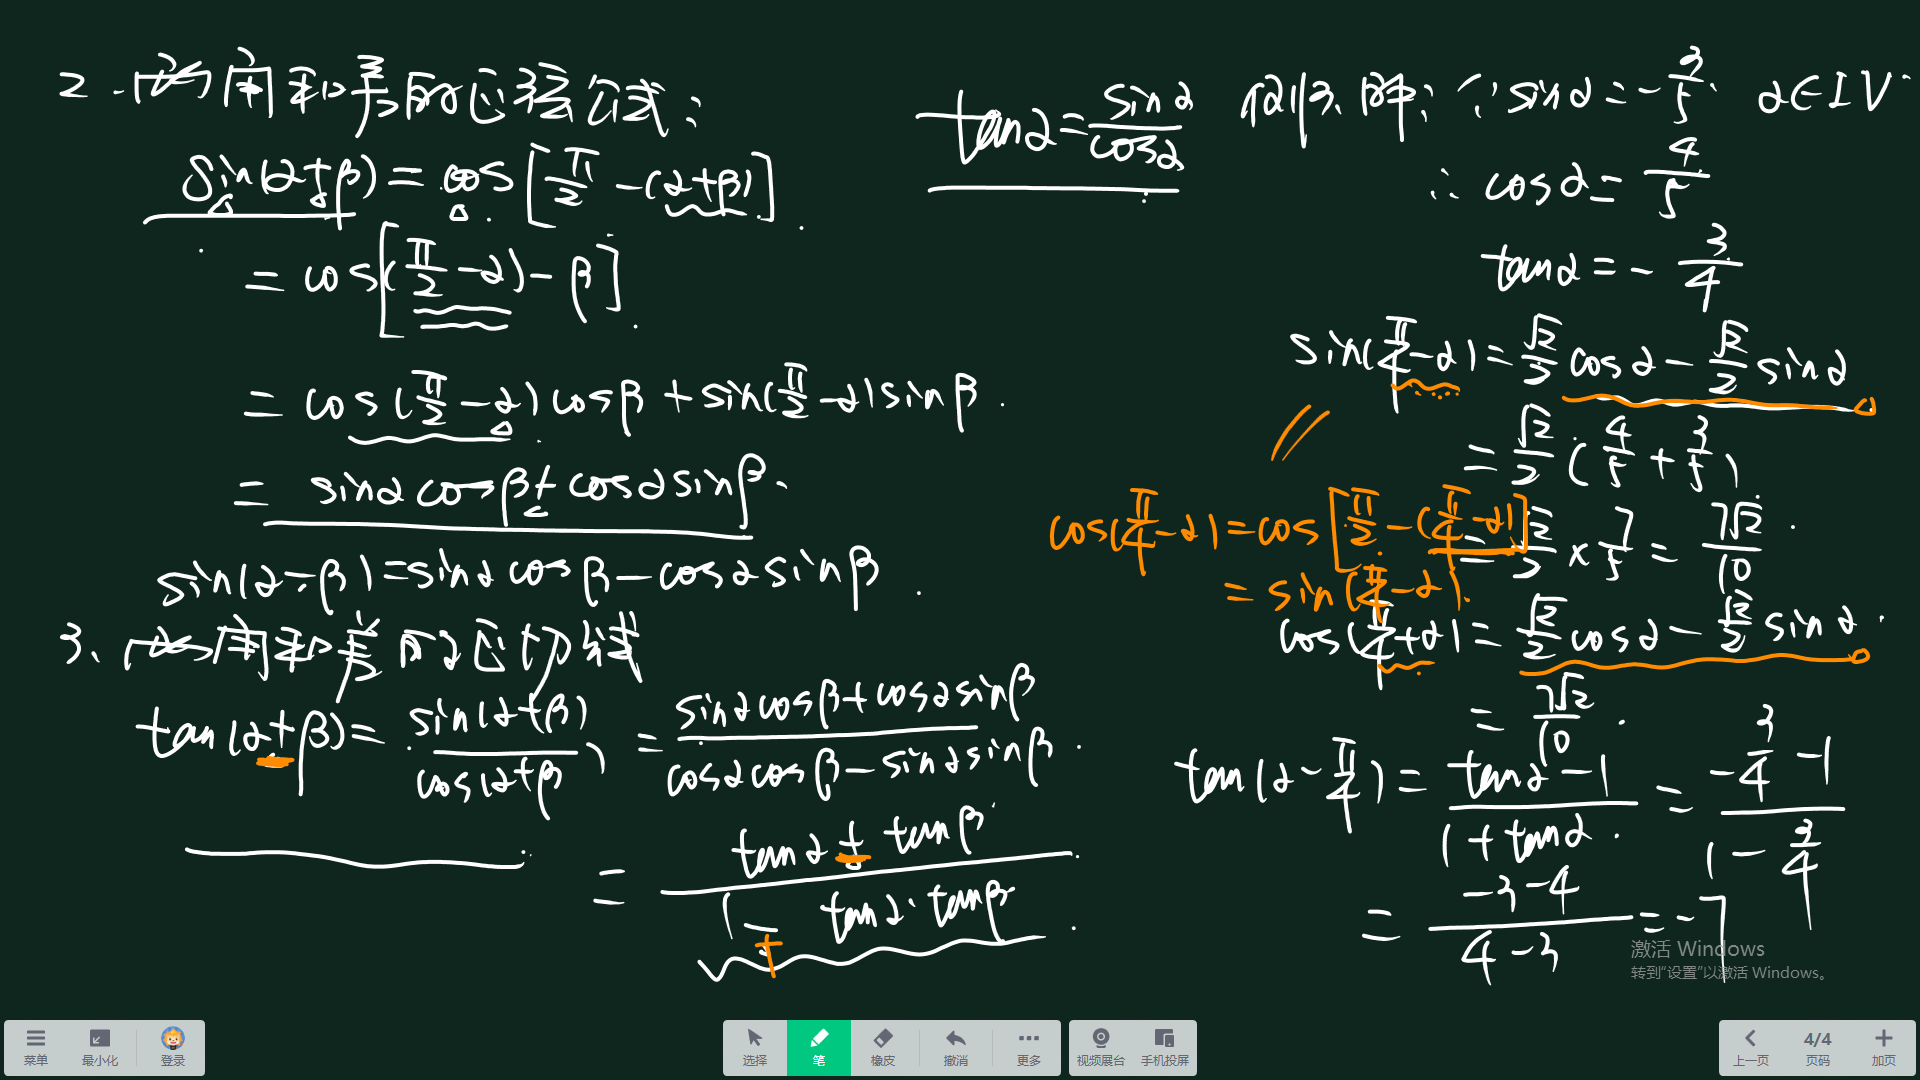 2. 两角和与差的正弦公式:
sin(α+β) = cos[π/2 -(α+β)]
= cos[(π/2 -α) - β]
= cos(π/2 -α)cosβ + sin(π/2 -α)sinβ
= sinαcosβ + cosαsinβ.
sin(α-β) = sinαcosβ - cosαsinβ
3、两角和与差的正切公式
tan(α+β) = sin(α+β)/cos(α+β) = (sinαcosβ+cosαsinβ)/(cosαcosβ-sinαsinβ)
= (tanα + tanβ)/(1 ∓ tanα·tanβ)
tanα = sinα/cosα
例3、解: ∵ sinα = -3/5. α∈IV
∴ cosα = 4/5
tanα = -3/4
sin(π/4 -α) = √2/2 cosα - √2/2 sinα
= √2/2 (4/5 + 3/5)
= √2/2 × 7/5 = 7√2/10
cos(π/4 -α) = cos[π/2 -(π/4 -α)]
= sin(π/4 -α).
cos(π/4 +α) = √2/2 cosα - √2/2 sinα.
= 7√2/10.
tan(α - π/4) = (tanα - 1)/(1 + tanα) = (-3/4 -1)/(1 - 3/4)
= (-3-4)/(4-3) = -7
激活 Windows
转到“设置”以激活 Windows。
菜单 最小化 登录 选择 笔 橡皮 撤消 更多 视频展台 手机投屏 上一页 4/4 页码 加页